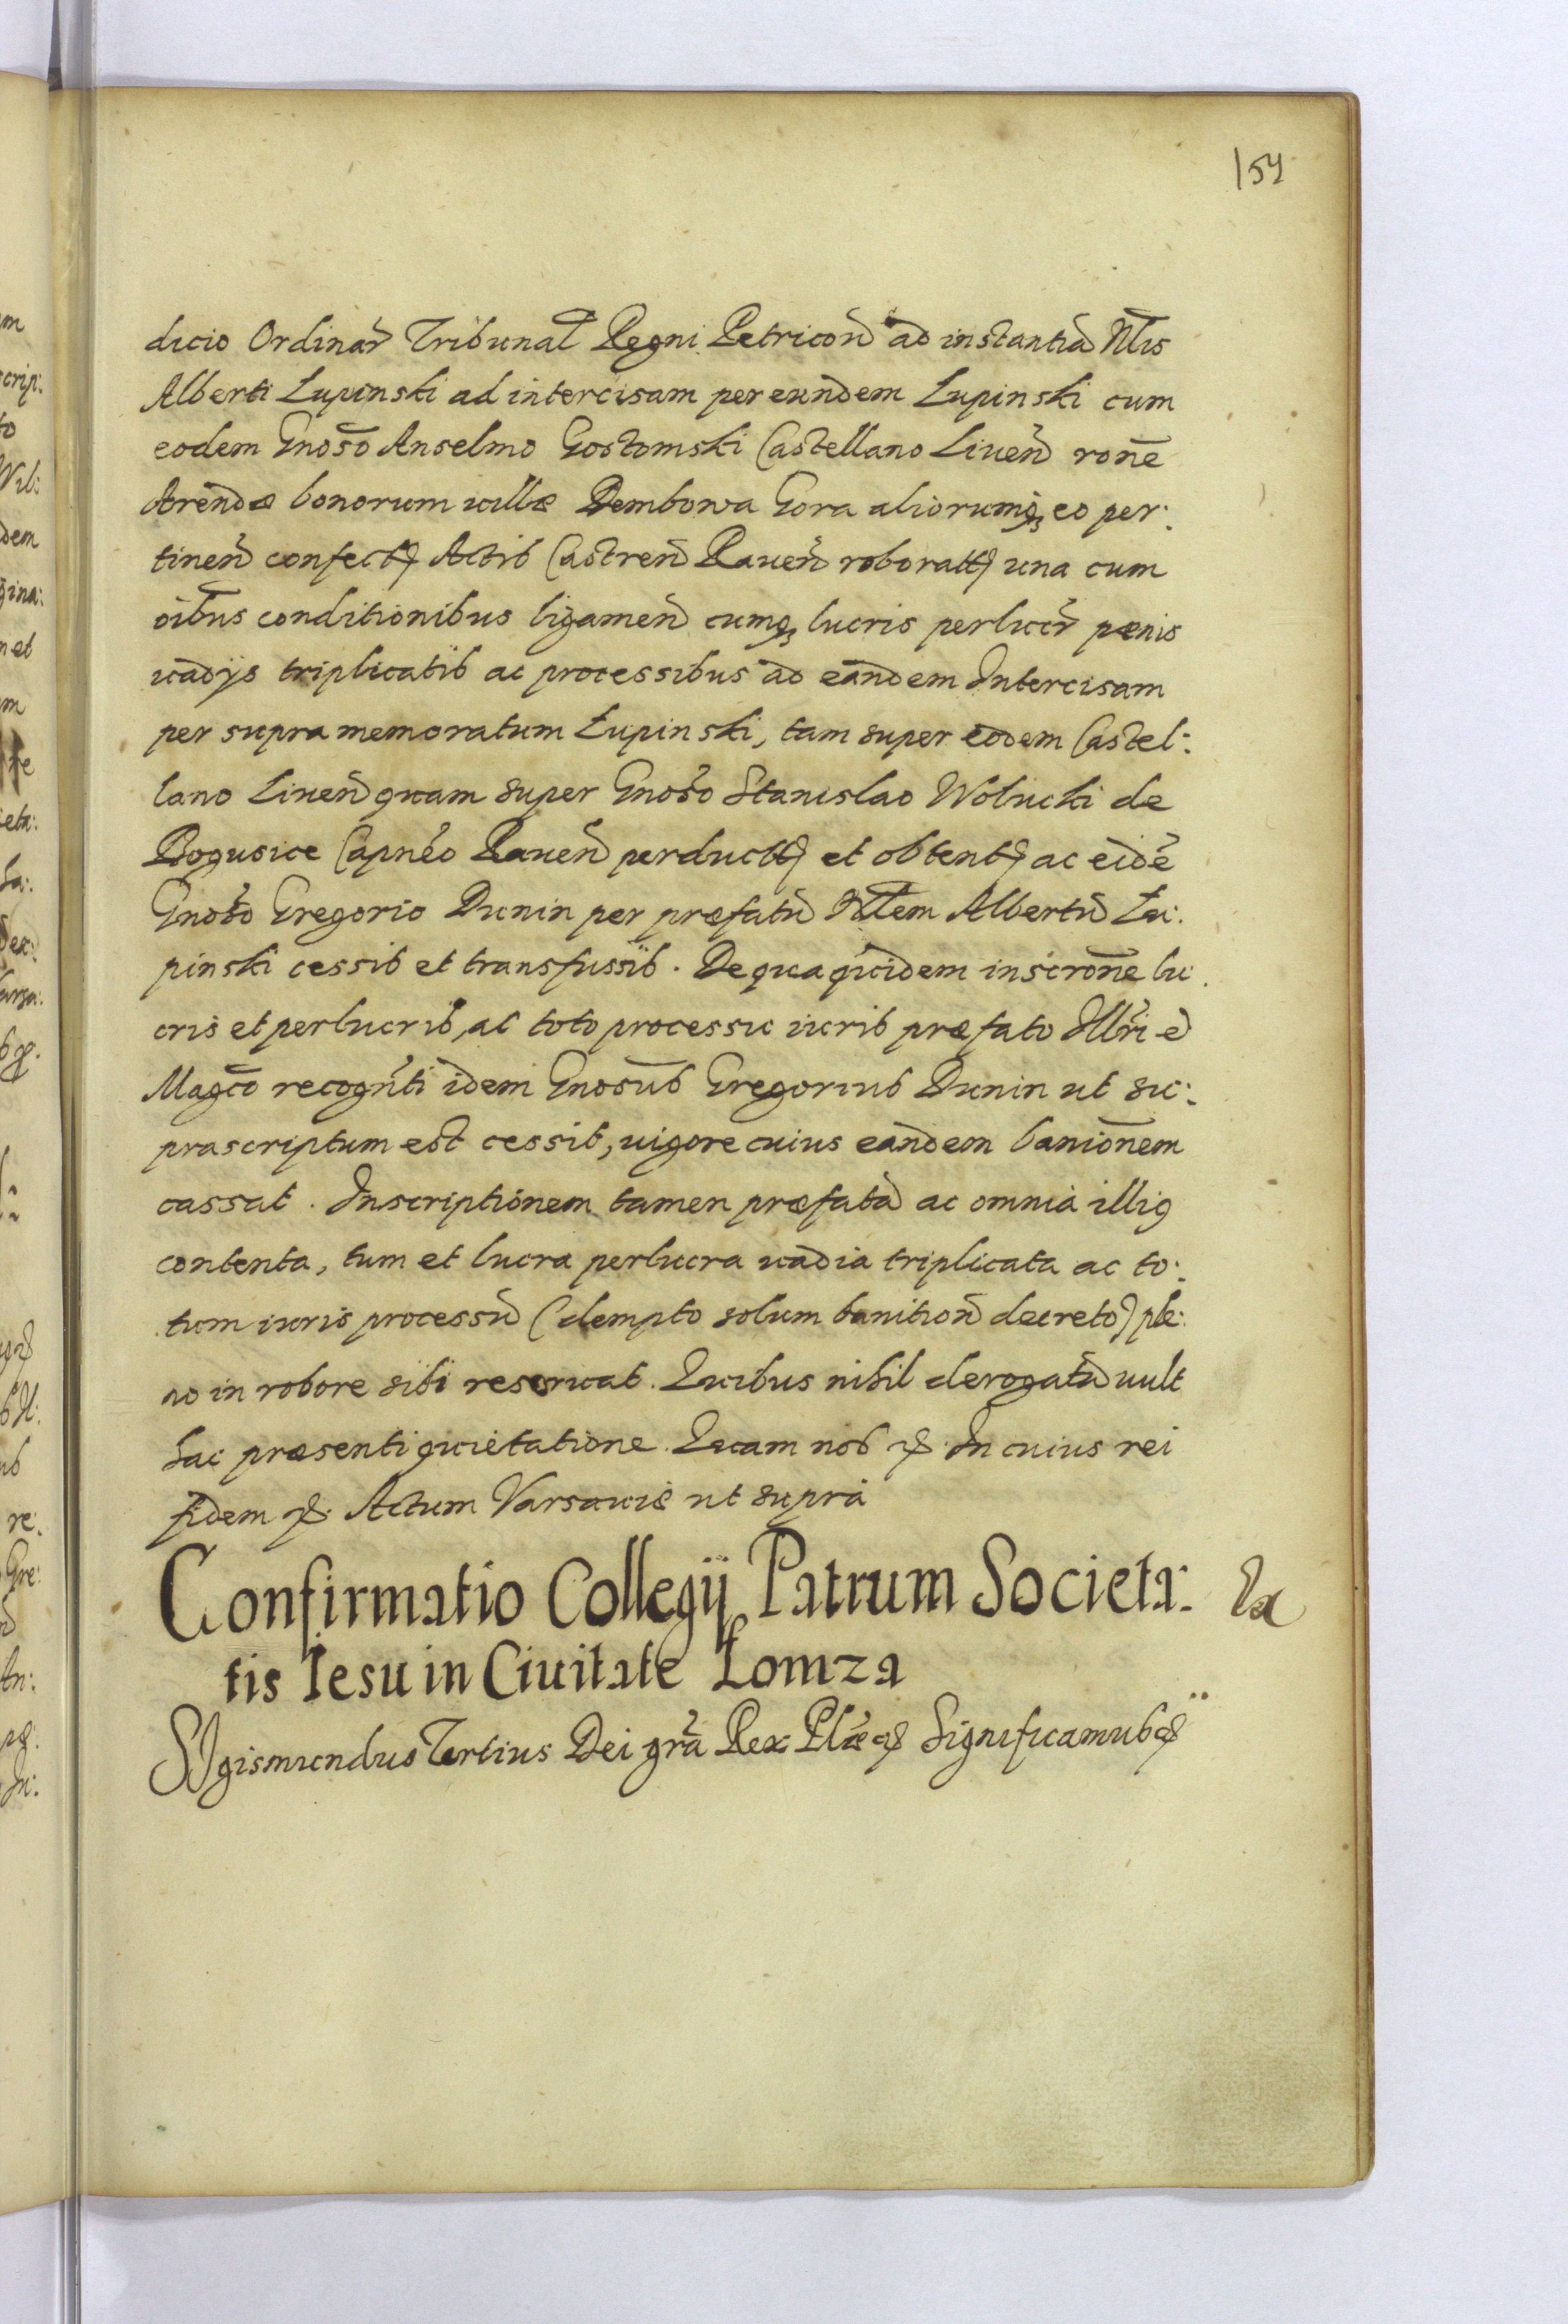 154
dicio Ordinar̃ Tribunal̃ Regni Petricoñ ad instantiã Nt̃lis
Alberti Łupinski ad intercisam per eundem Łupinski cum
eodem Gnoso Anselmo Gostomski Castellano Liueñ rone
Arendæ bonorum uillæ Dembowa Gora aliorumq; eo per:
tineñ confectt; Actis Castreñ Raueñ roboratt; una cum
oibus conditionibus ligameñ cumq; lucris perlucr̃ pænis
uadijs triplicatis ac processibus ad eandem Intercisam
per supra memoratum Łupinski, tam super eodem Castel:
lano Liueñ quam super Gnoso Stanislao Wolucki de
Bogusice Capneo Raueñ perductt; et obtentt; ac eidẽ
Gnoso Gregorio Dunin per præfatũ Nt̃lem Albertũ Łu:
pinski cessis et transfussis. De qua quidem inscrone lu:
cris et perlucris, ac toto processu iuris præfato Illri e
Magco recognti idem Gnosus Gregorius Dunin ut su:
prascriptum est cessit, uigore cuius eandem banionem
cassat. Inscriptionem tamen præfatã ac omnia illiq
contenta, tum et lucra perlucra uadia triplicata ac to:
tum iuris processũ (dempto solum banitioñ decreto) ple:
no in robore sibi reseruat. Quibus nihil derogatũ uult
hac præsenti quietatione. Quam nos &. In cuius rei
fidem &. Actum Varsauiæ ut supra
Confirmatio Collegij Patrum Societa:
tis Iesu in Ciuitate Łomza
SIgismundus Tertius Dei gra Rex Plæ & Significamus &